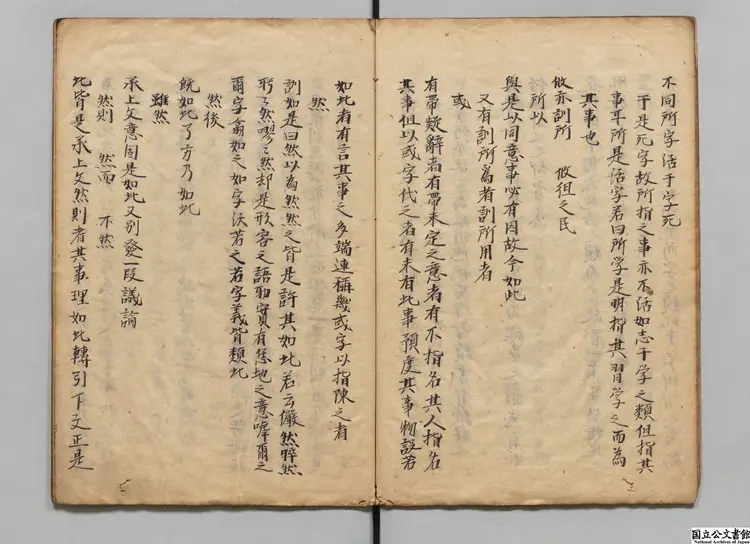 不同所字活于字死
于是死字故所指之事亦不活如志于学之類但指其
事耳所是活字若曰所学是明指其習学之而為
其事也
攸亦訓所　攸徂之民
所以
與是以同意事必有因故今如此
又有訓所為者訓所用者
或
有帶疑辭者有帶未定之意者有不指名其人指名
其事但以或字代之者有未有此事預度其事物說若
如此者有言其事之多端連稱幾或字以指陳之者
然
訓如是曰然以為然然之皆是許其如此若云儼然睟然
形之然嘐之然却是形容之語助實有恁地之意啍爾之
爾字翕如之如字沃若之若字義皆類此
然後
既如此了方乃如此
雖然
承上文意固是如此又別發一段議論
然則　然而　不然
此皆是承上文然則者其事理如此轉引下文正是
国立公文書館
National Archives of Japan